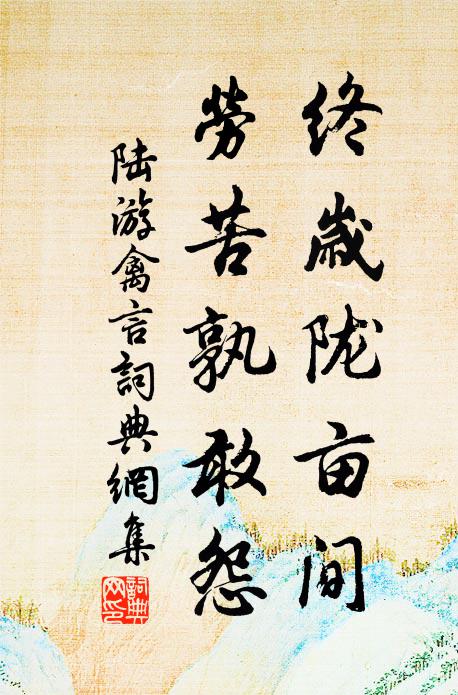 终岁陇亩间
劳苦孰敢怨
陆游禽言詞典網集
詞典网印